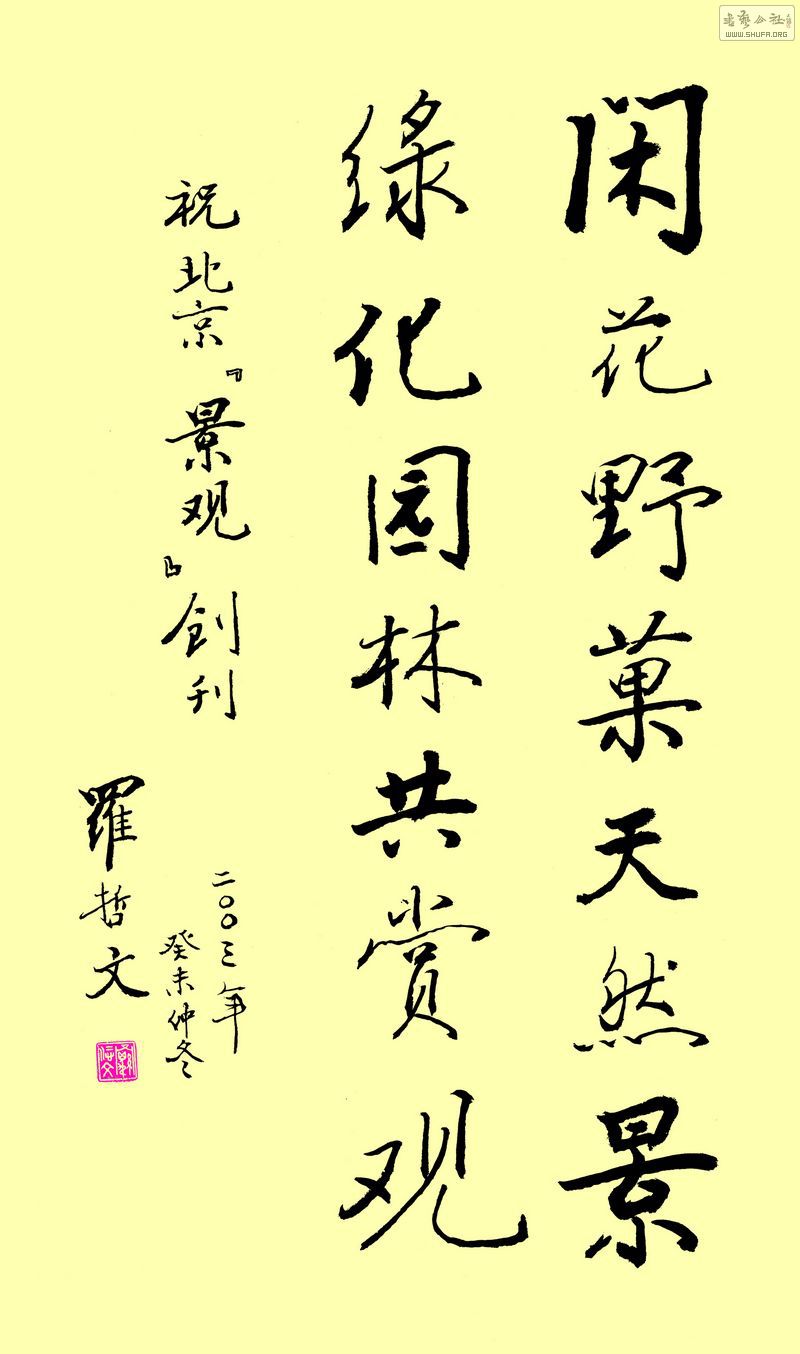 閑花野菓天然景
绿化园林共赏观
祝北京『景观』创刊
二〇〇三年
癸未仲冬
羅哲文
书艺公社
WWW.SHUFA.ORG